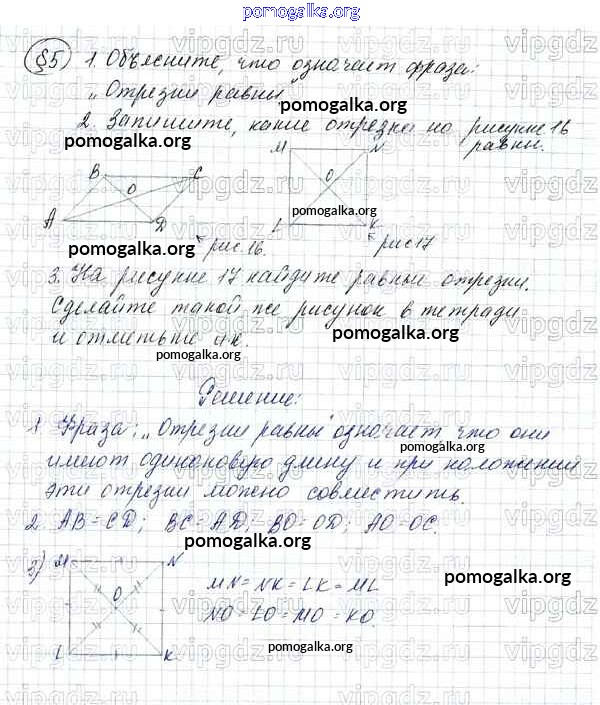 pomogalka.org
§5 1. Объясните, что означает фраза:
„Отрезки равны"
pomogalka.org
2. Запишите, какие отрезки на рисунке 16
равны.
pomogalka.org
B C
O
A D
M N
O
pomogalka.org
L K
рис.16. рис17
pomogalka.org
3. На рисунке 17 найдите равные отрезки.
Сделайте такой же рисунок в тетради
pomogalka.org
и отметьте их.
pomogalka.org
Решение:
1 Фраза: „Отрезки равны" означает, что они
pomogalka.org
имеют одинаковую длину и при наложении
эти отрезки можно совместить.
2. AB=CD; BC=AD; BO=OD; AO=OC.
pomogalka.org
3) M N
O
L K
MN=NK=LK=ML
pomogalka.org
NO=LO=MO=KO.
pomogalka.org
vipgdz.ru